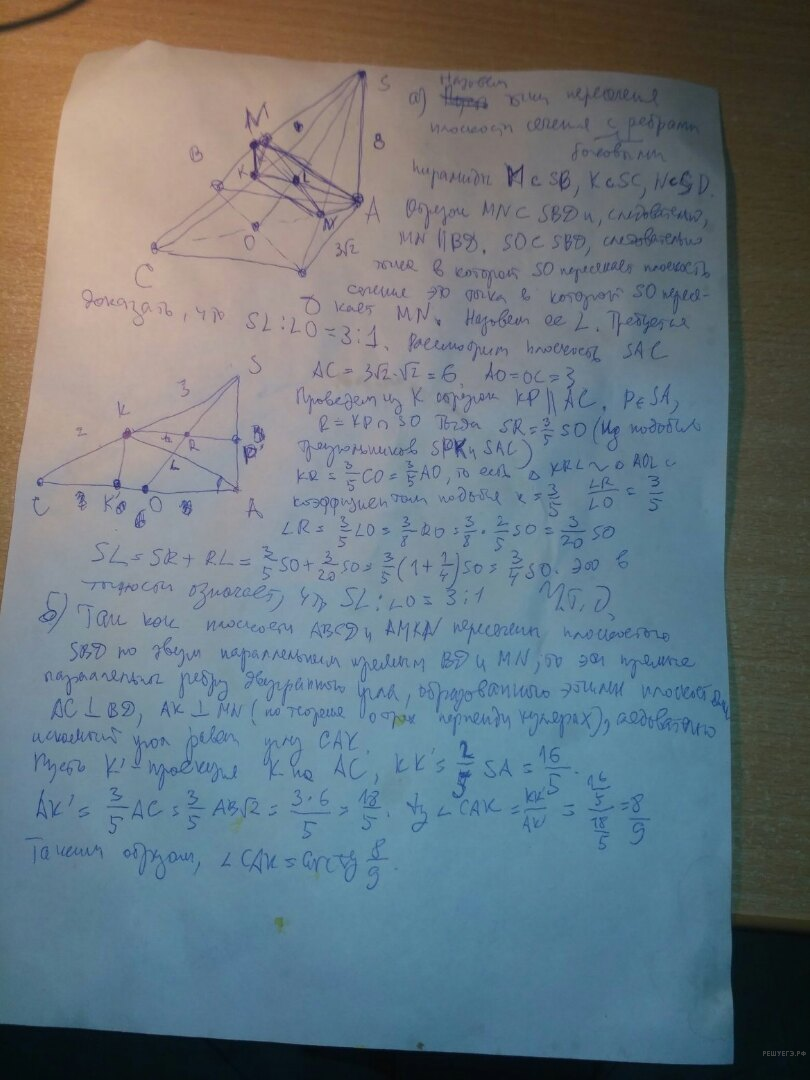 S
M
B
8
K
L
A
N
O
C
3√2
D
а) Назовём точки пересечения
плоскости сечения с ребрами
боковыми
пирамиды M∈SB, K∈SC, N∈SD.
Отрезок MN⊂SBD и, следовательно,
MN∥BD. SO⊂SBD, следовательно
точка в которой SO пересекает плоскость
сечения это точка в которой SO пересе-
кает MN. Назовем ее L. Требуется
доказать, что SL:LO=3:1.
Рассмотрим плоскость SAC
AC = 3√2·√2 = 6, AO=OC=3
Проведем из K отрезок KP∥AC. P∈SA,
R = KP∩SO Тогда SR=3/5 SO (из подобия
треугольников SPK и SAC)
KR = 3/5 CO = 3/5 AO, то есть △KRL∼△AOL с
коэффициентом подобия k = 3/5 LR/LO = 3/5
S
3
K
2
R
P
L
C
K'
O
A
LR = 3/5 LO = 3/8 RO = 3/8 · 2/5 SO = 3/20 SO
SL = SR + RL = 3/5 SO + 3/20 SO = 3/5 (1+1/4) SO = 3/4 SO. Это в
точности означает, что SL:LO = 3:1 Ч.Т.Д.
б) Так как плоскости ABCD и AMKN пересечены плоскостью
SBD по двум параллельным прямым BD и MN, то эти прямые
параллельны ребру двугранного угла, образованного этими плоскостями
AC⊥BD, AK⊥MN (по теореме о трех перпендикулярах), следовательно
искомый угол равен углу CAK.
Пусть K' - проекция K на AC, KK' = 2/5 SA = 16/5.
AK' = 3/5 AC = 3/5 AB√2 = 3·6/5 = 18/5. tg∠CAK = KK'/AK' = 16/5 / 18/5 = 8/9
Таким образом, ∠CAK = arctg 8/9.
РЕШУЕГЭ.РФ